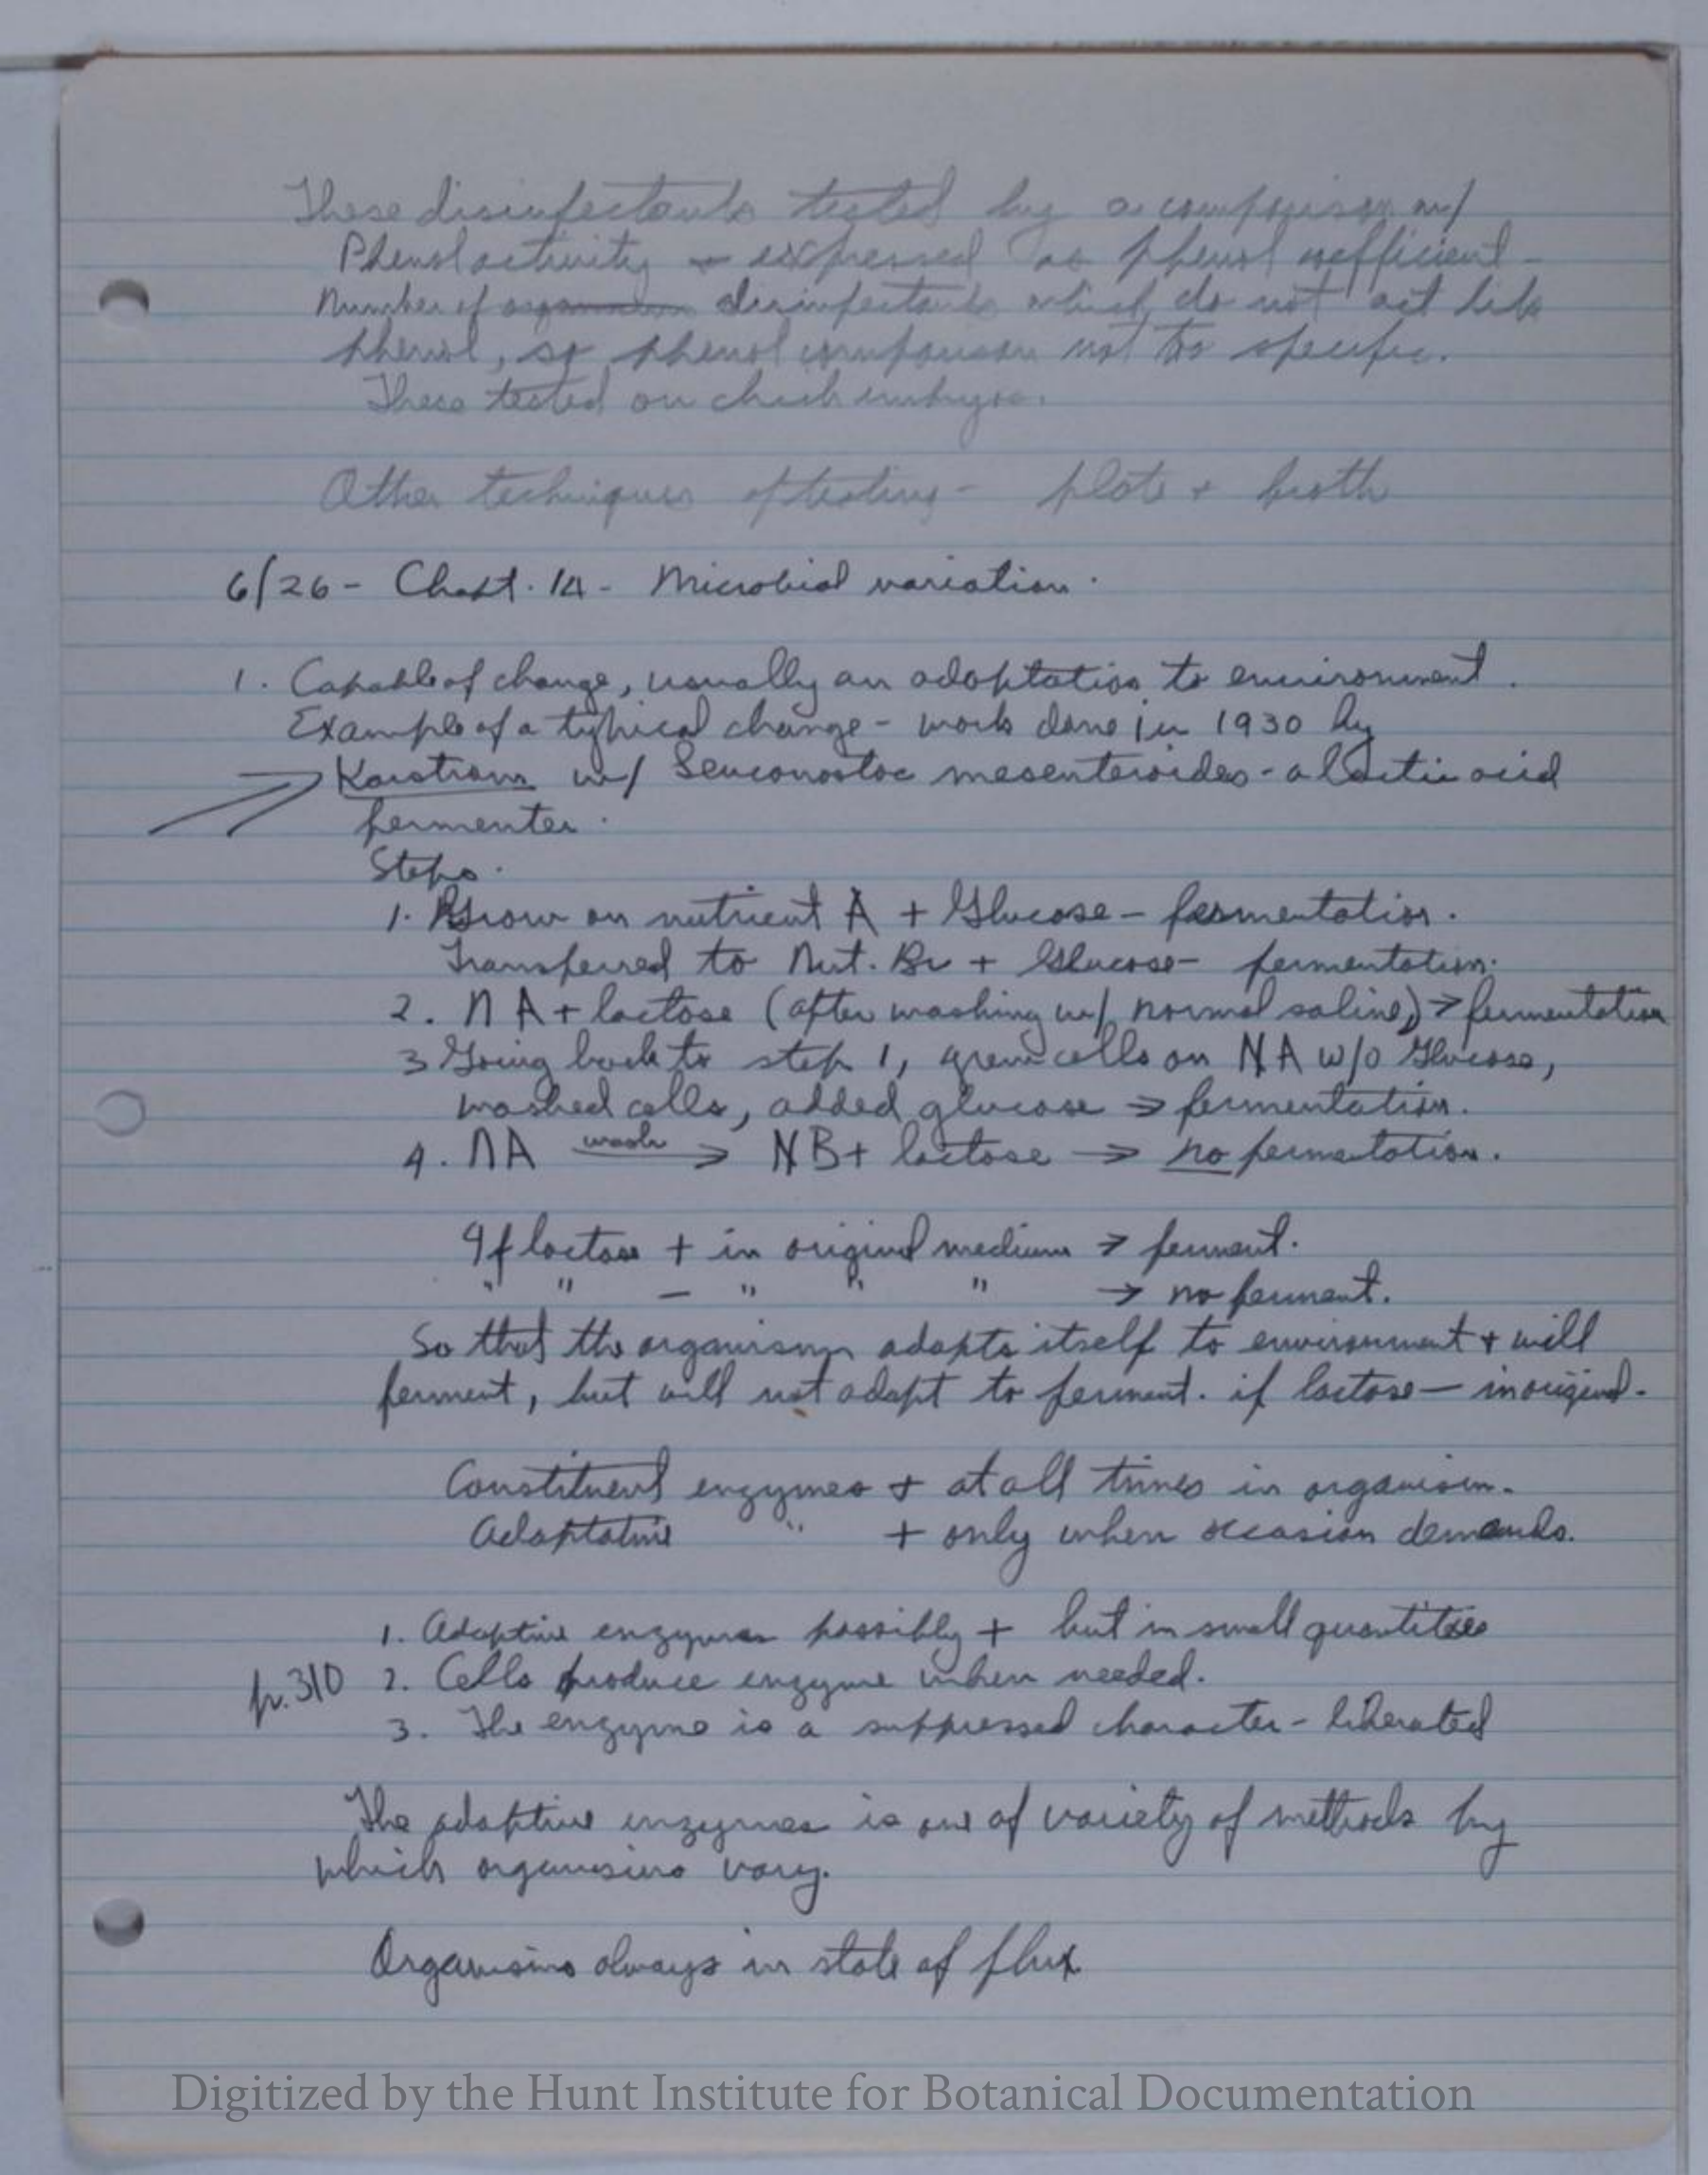 These disinfectants tested by a comparison w/
Phenol activity + expressed as phenol coefficient -
Number of organisms disinfectants which do not act like
phenol, so phenol comparison not too specific.
These tested on chick embryos.
Other techniques of testing - plate + broth
6/26 - Chapt. 14 - Microbial variation.
1. Capable of change, usually an adaptation to environment.
Example of a typical change - work done in 1930 by
Karstrom w/ Leuconostoc mesenteroides - a lactic acid
fermenter.
Steps.
1. Grow on nutrient A + Glucose - fermentation.
Transferred to Nut. Br + Glucose - fermentation.
2. NA + lactose (after washing w/ normal saline) → fermentation
3 Going back to step 1, grew cells on NA w/o Glucose,
washed cells, added glucose → fermentation.
4. NA wash → NB + lactose → no fermentation.
If lactose + in original medium → ferment.
" " - " " " → no ferment.
So that the organism adapts itself to environment + will
ferment, but will not adapt to ferment. if lactose - in original.
Constituent enzymes + at all times in organism.
Adaptative " + only when occasion demands.
1. Adaptive enzymes possibly + but in small quantities
p. 310 2. Cells produce enzyme when needed.
3. The enzyme is a suppressed character - liberated
The adaptive enzymes is one of variety of methods by
which organisms vary.
Organisms always in state of flux
Digitized by the Hunt Institute for Botanical Documentation